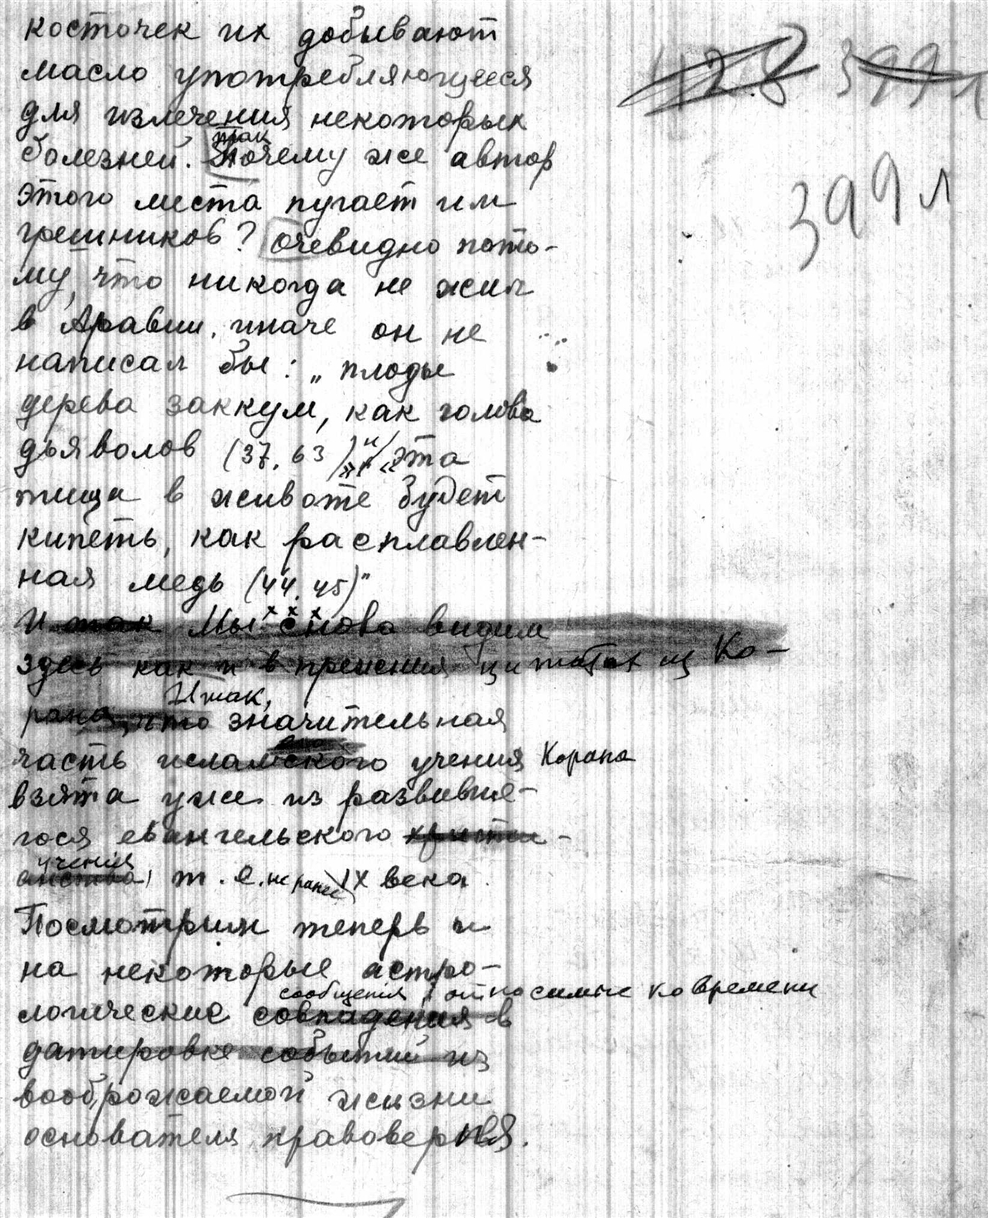 косточек их добывают
масло употребляющееся
для излечения некоторых
болезней. Почему же автор
этого места пугает им
грешников? Очевидно пото-
му, что никогда не жил
в Аравии, иначе он не
написал бы: „плоды
дерева заккум, как голова
дьяволов (37, 63)" и „эта
пища в животе будет
кипеть, как расплавлен-
ная медь (44, 45)"
И так мы снова видим
здесь как и в прежних цитатах из Ко-
рана, что Итак, значительная
часть исламского учения Корана
взята уже из развивше-
гося евангельского христи-
анства учения, т. е. не ранее IX века.
Посмотрим теперь и
на некоторые астро-
логические совпадения в сообщения, относимые ко времени
датировке событий из
воображаемой жизни
основателя правоверия.
428 399л
399л